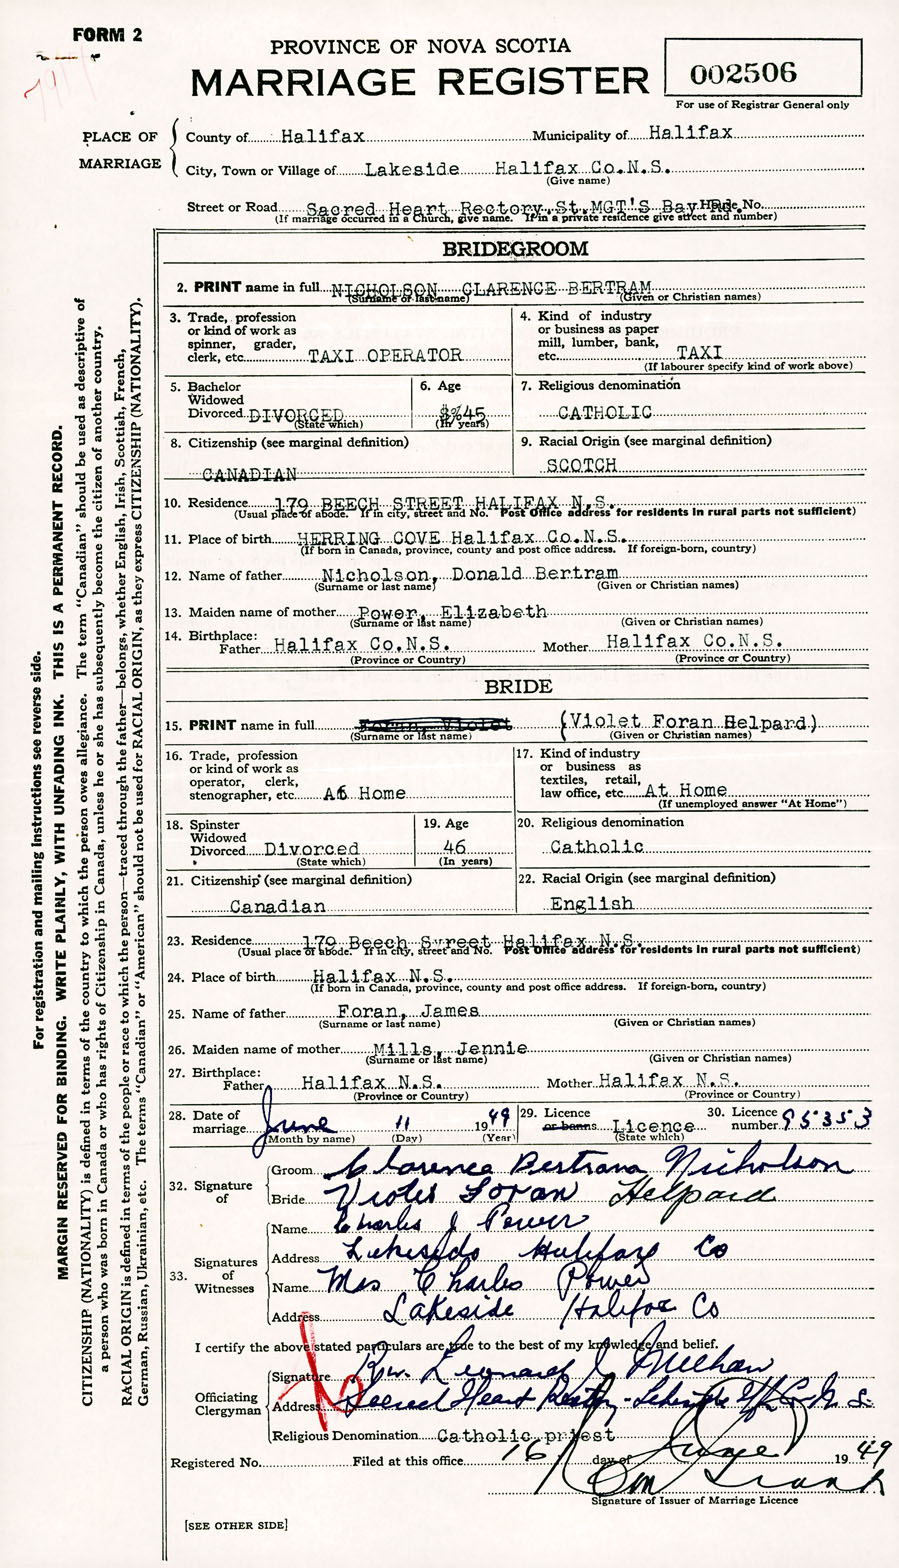 FORM 2
PROVINCE OF NOVA SCOTIA
MARRIAGE REGISTER
002506
For use of Registrar General only
PLACE OF MARRIAGE
County of Halifax Municipality of Halifax
City, Town or Village of Lakeside Halifax Co.N.S.
(Give name)
Street or Road Sacred Heart Rectory, St.MGT'S Bay Rd. House No.
(If marriage occurred in a Church, give name. If in a private residence give street and number)
BRIDEGROOM
2. PRINT name in full NICHOLSON CLARENCE BERTRAM
(Surname or last name) (Given or Christian names)
3. Trade, profession or kind of work as spinner, grader, clerk, etc. TAXI OPERATOR
4. Kind of industry or business as paper mill, lumber, bank, etc. TAXI
(If labourer specify kind of work above)
5. Bachelor Widowed Divorced DIVORCED
(State which)
6. Age 45
(In years)
7. Religious denomination
CATHOLIC
8. Citizenship (see marginal definition)
CANADIAN
9. Racial Origin (see marginal definition)
SCOTCH
10. Residence 179 BEECH STREET HALIFAX N.S.
(Usual place of abode. If in city, street and No. Post Office address for residents in rural parts not sufficient)
11. Place of birth HERRING COVE Halifax Co.N.S.
(If born in Canada, province, county and post office address. If foreign-born, country)
12. Name of father Nicholson, Donald Bertram
(Surname or last name) (Given or Christian names)
13. Maiden name of mother Power, Elizabeth
(Surname or last name) (Given or Christian names)
14. Birthplace: Father Halifax Co.N.S. Mother Halifax Co.N.S.
(Province or Country) (Province or Country)
BRIDE
15. PRINT name in full Foran, Violet (Violet Foran Helpard)
(Surname or last name) (Given or Christian names)
16. Trade, profession or kind of work as operator, clerk, stenographer, etc. At Home
17. Kind of industry or business as textiles, retail, law office, etc. At Home
(If unemployed answer "At Home")
18. Spinster Widowed Divorced Divorced
(State which)
19. Age 46
(In years)
20. Religious denomination
Catholic
21. Citizenship (see marginal definition)
Canadian
22. Racial Origin (see marginal definition)
English
23. Residence 179 Beech Syreet Halifax N.S.
(Usual place of abode. If in city, street and No. Post Office address for residents in rural parts not sufficient)
24. Place of birth Halifax N.S.
(If born in Canada, province, county and post office address. If foreign-born, country)
25. Name of father Foran, James
(Surname or last name) (Given or Christian names)
26. Maiden name of mother Mills, Jennie
(Surname or last name) (Given or Christian names)
27. Birthplace: Father Halifax N.S. Mother Halifax N.S.
(Province or Country) (Province or Country)
28. Date of marriage June 11 1949
(Month by name) (Day) (Year)
29. Licence or banns Licence
(State which)
30. Licence number 95353
32. Signature of
Groom Clarence Bertram Nicholson
Bride Violet Foran Helpard
33. Signatures of Witnesses
Name Charles J Power
Address Lakeside Halifax Co
Name Mrs Charles Power
Address Lakeside Halifax Co
I certify the above stated particulars are true to the best of my knowledge and belief.
Officiating Clergyman
Signature Rev. Leonard J Meehan
Address Sacred Heart Rectory - Lakeside Hfx Co N.S.
Religious Denomination Catholic priest
Registered No. Filed at this office 16 day of June 1949
Signature of Issuer of Marriage Licence
[SEE OTHER SIDE]
For registration and mailing instructions see reverse side.
MARGIN RESERVED FOR BINDING. WRITE PLAINLY, WITH UNFADING INK. THIS IS A PERMANENT RECORD.
CITIZENSHIP (NATIONALITY) is defined in terms of the country to which the person owes allegiance. The term "Canadian" should be used as descriptive of
a person who was born in Canada or who has rights of Citizenship in Canada, unless he or she has subsequently become the citizen of another country.
RACIAL ORIGIN is defined in terms of the people or race to which the person—traced through the father—belongs, whether English, Irish, Scottish, French,
German, Russian, Ukrainian, etc. The terms "Canadian" or "American" should not be used for RACIAL ORIGIN, as they express CITIZENSHIP (NATIONALITY).